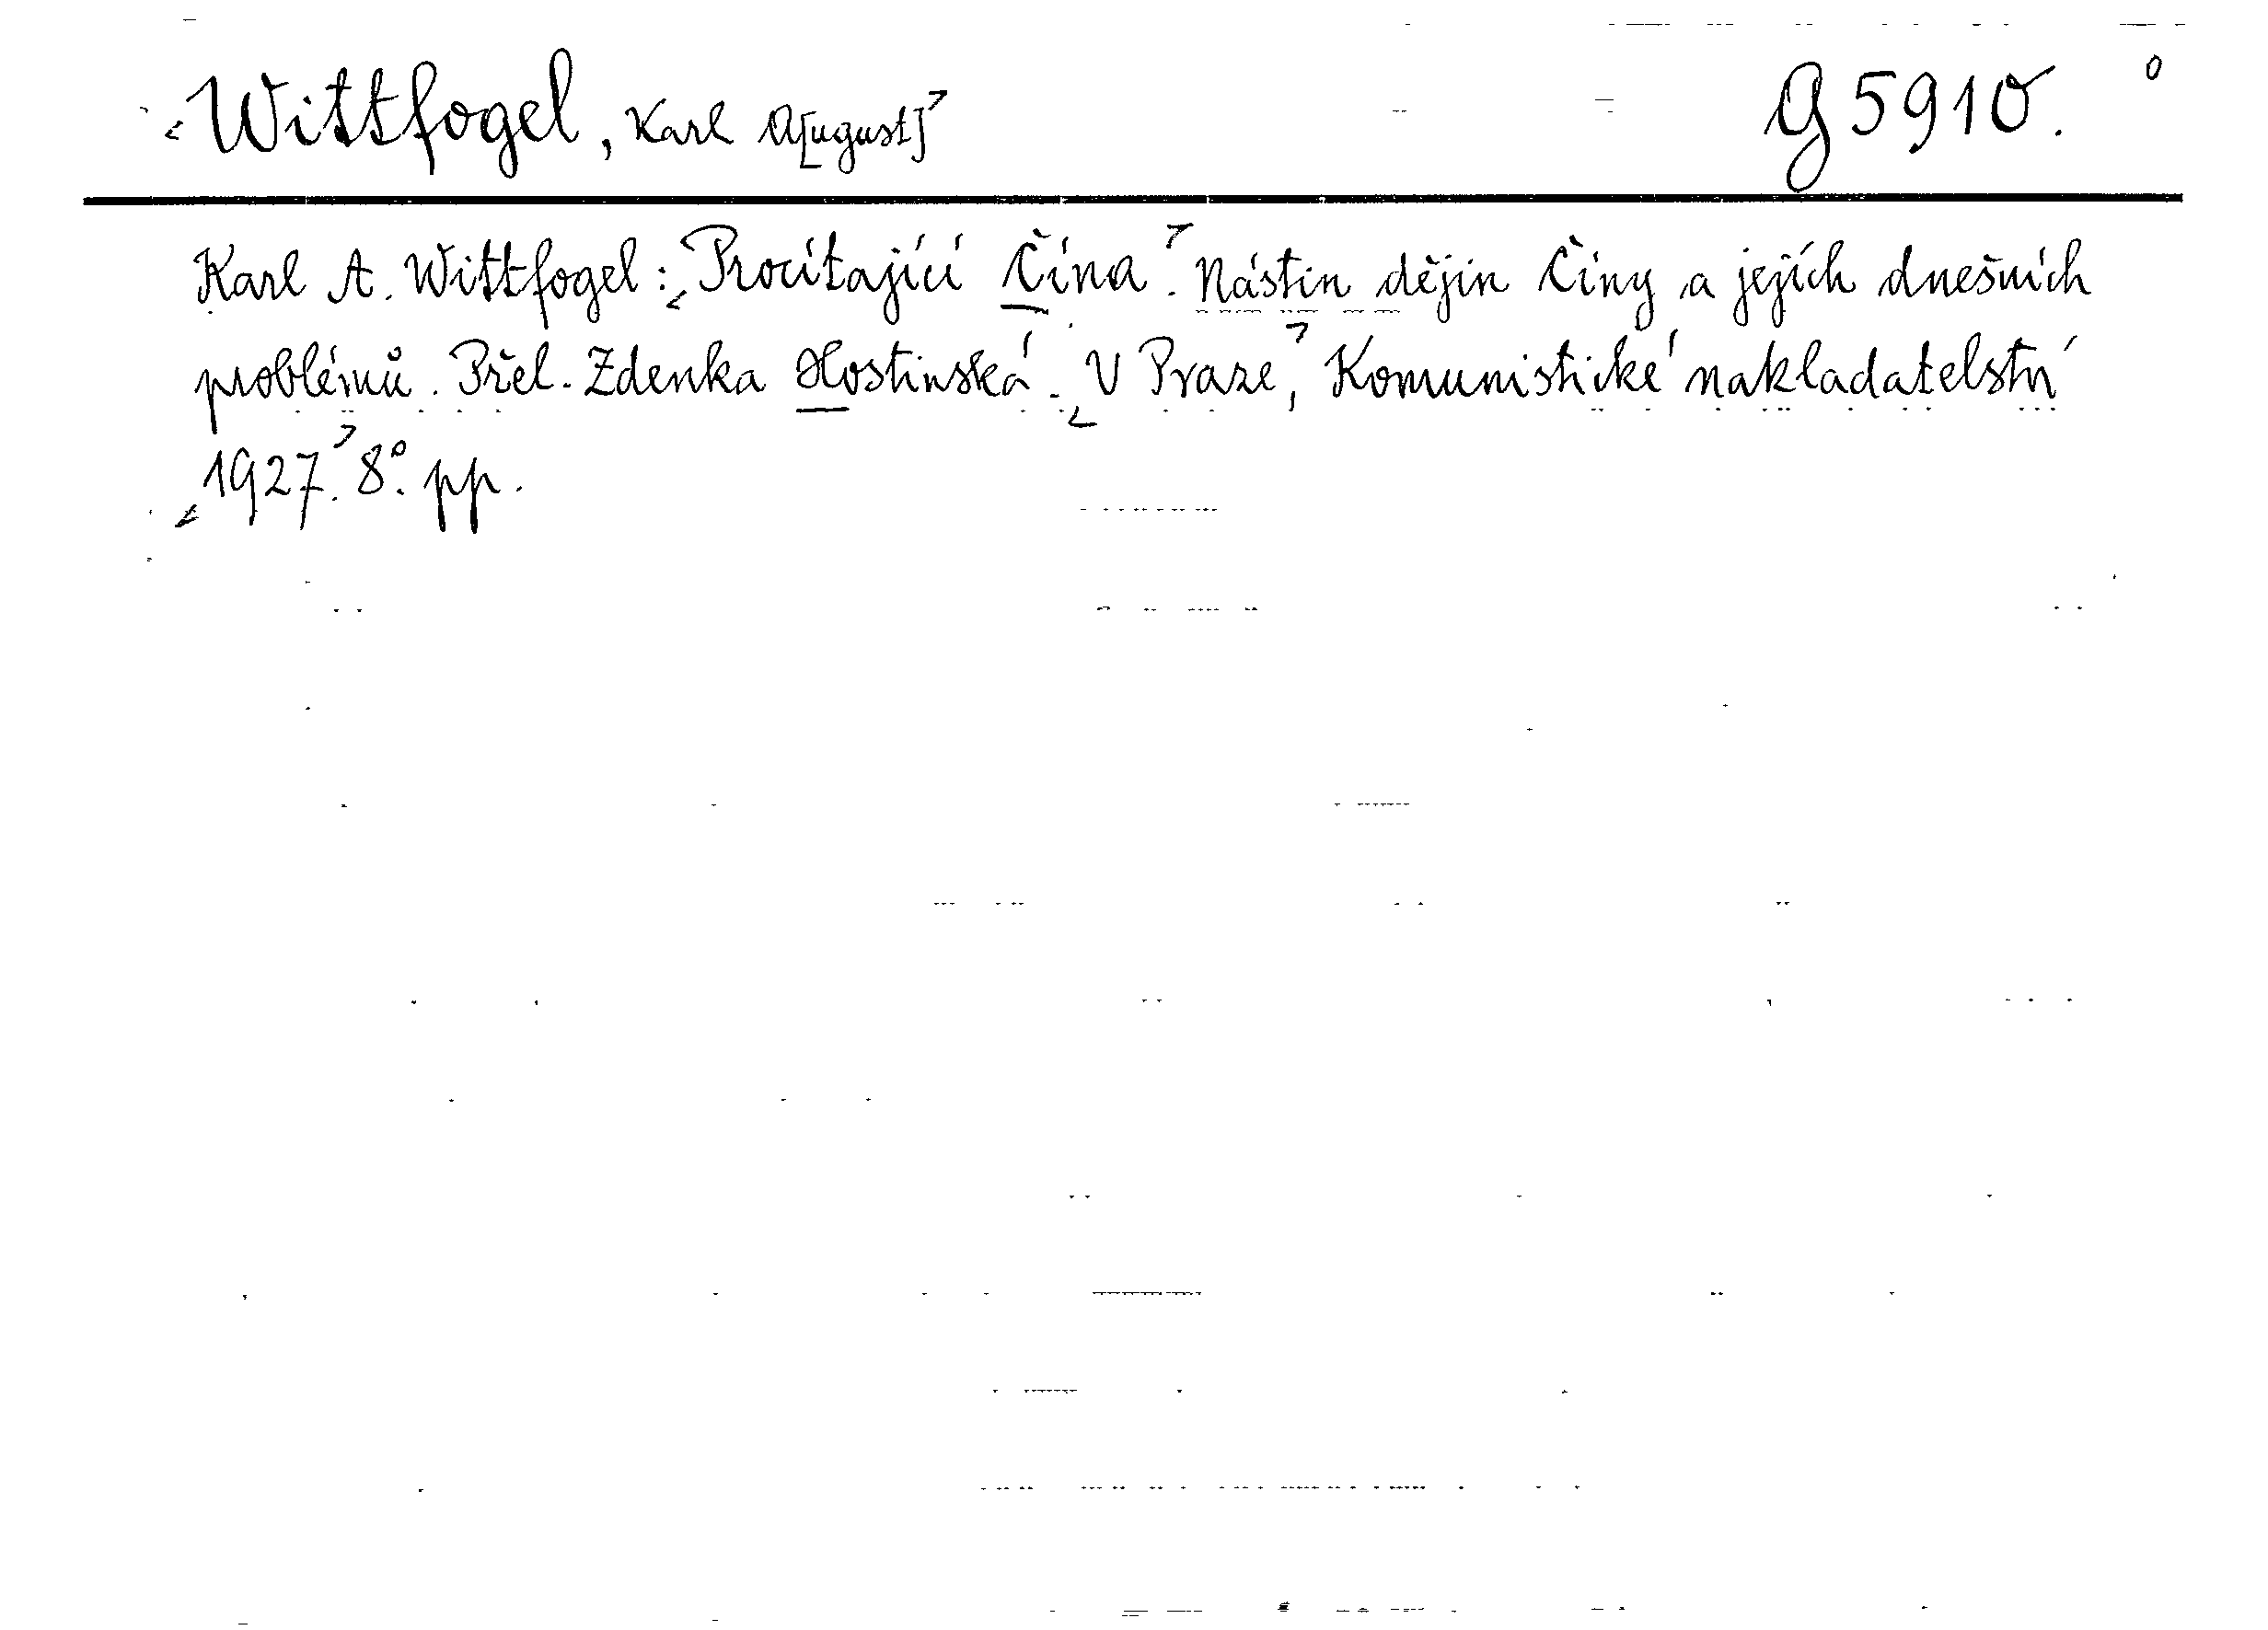 Wittfogel, Karl A[ugust] G 5910. 0
Karl A. Wittfogel: Procítající Čína. Nástin dějin Číny a jejích dnešních
problémů. Přel. Zdenka Hostinská. V Praze, Komunistické nakladatelství
1927. 8°. pp.